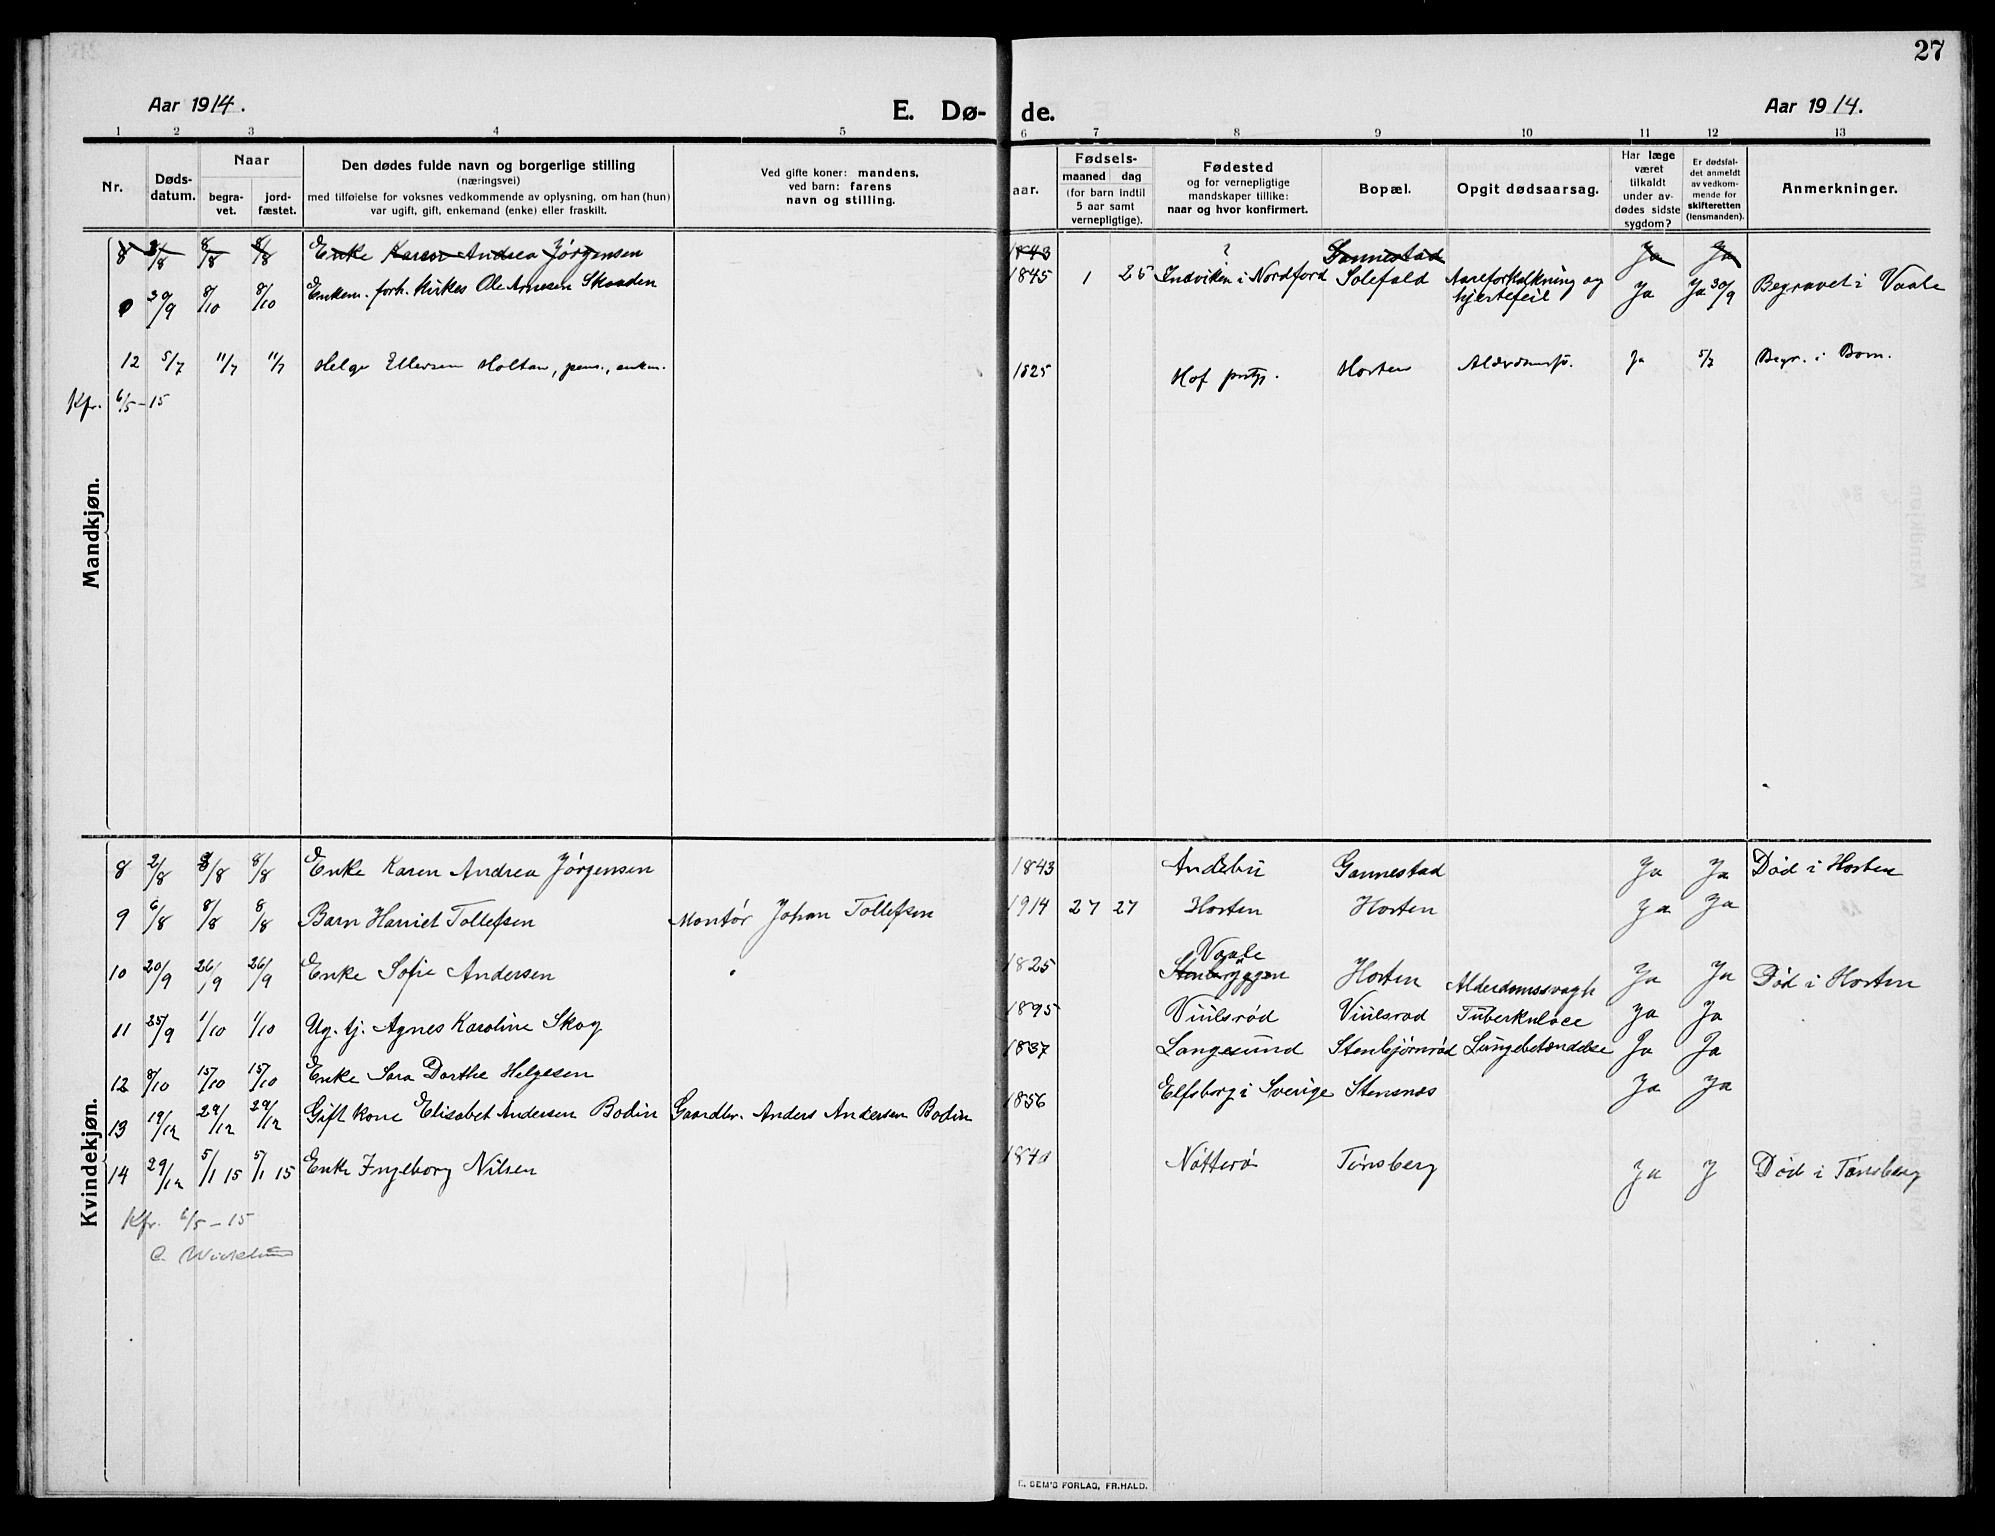 27
Aar 1914.
E. Dø- de.
Aar 1914.
1 2 3 4 5 6 7 8 9 10 11 12 13
Nr.
Døds-
datum.
Naar
begra-
vet.
jord-
fæstet.
Den dødes fulde navn og borgerlige stilling
(næringsvei)
med tilføielse for voksnes vedkommende av oplysning, om han (hun)
var ugift, gift, enkemand (enke) eller fraskilt.
Ved gifte koner: mandens,
ved barn: farens
navn og stilling.
aar.
Fødsels-
maaned dag
(for barn indtil
5 aar samt
vernepligtige).
Fødested
og for vernepligtige
mandskaper tillike:
naar og hvor konfirmert.
Bopæl.
Opgit dødsaarsag.
Har læge
været
tilkaldt
under av-
dødes sidste
sygdom?
Er dødsfal-
det anmeldt
av vedkom-
mende for
skifteretten
(lensmanden).
Anmerkninger.
Mandkjøn.
8 2/8 8/8 8/8 Enke Karen Andrea Jørgensen 1843 ? Gannestad Ja Ja
30/9 8/10 8/10 Enkem. forh. Kirkes. Ole Arnesen Skaaden 1845 1 25 Indviken i Nordfjord Solefald Aareforkalkning og
hjertefeil Ja Ja 30/9 Begravet i Vaale
12 5/7 11/7 11/7 Helge Ellevsen Holtan, pens., enkem. 1825 Hof prstgj. Horten Alderdomssv. Ja 5/7 Begr. i Borre.
Kfr. 6/5-15
Kvindekjøn.
8 2/8 8/8 8/8 Enke Karen Andrea Jørgensen 1843 Andebu Gannestad Ja Ja Død i Horten
9 6/8 8/8 8/8 Barn Harriet Tollefsen Montør Johan Tollefsen 1914 27 27 Horten Horten Ja Ja
Vaale
10 20/9 26/9 26/9 Enke Sofie Andersen 1825 Stenbryggen Horten Alderdomssvagh Ja Ja Død i Horten
11 25/9 1/10 1/10 Ug. tj. Agnes Karoline Skog 1895 Viulsrød Viulsrød Tuberkulose Ja Ja
12 8/10 15/10 15/10 Enke Sara Dorthe Helgesen 1837 Langesund Stenbjørnrød Lungebetændelse Ja Ja
13 19/12 29/12 29/12 Gift kone Elisabet Andersen Bodin Gaardbr. Anders Andersen Bodin 1856 Elfsborg i Sverige Stensnæs Ja Ja
14 29/12 5/1 15 5/1 15 Enke Ingeborg Nilsen Nøtterø Tønsberg Ja J Død i Tønsberg
Kfr. 6/5-15
E. SEM'S FORLAG, FR.HALD.